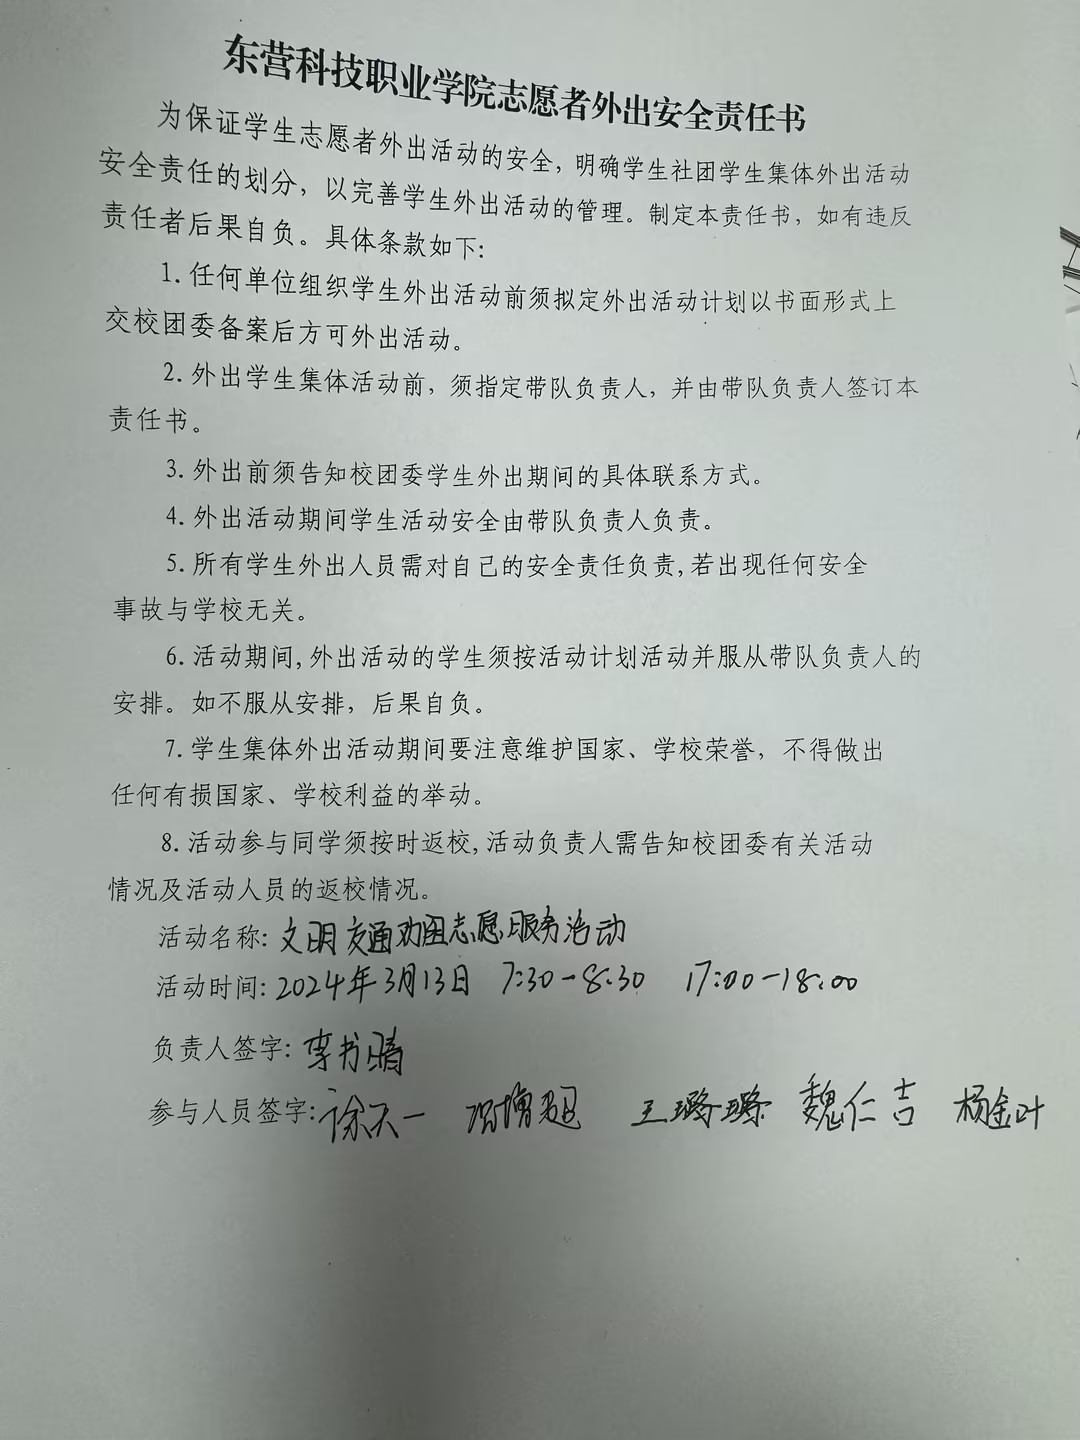 东营科技职业学院志愿者外出安全责任书
为保证学生志愿者外出活动的安全，明确学生社团学生集体外出活动
安全责任的划分，以完善学生外出活动的管理。制定本责任书，如有违反
责任者后果自负。具体条款如下：
1.任何单位组织学生外出活动前须拟定外出活动计划以书面形式上
交校团委备案后方可外出活动。
2.外出学生集体活动前，须指定带队负责人，并由带队负责人签订本
责任书。
3.外出前须告知校团委学生外出期间的具体联系方式。
4.外出活动期间学生活动安全由带队负责人负责。
5.所有学生外出人员需对自己的安全责任负责,若出现任何安全
事故与学校无关。
6.活动期间,外出活动的学生须按活动计划活动并服从带队负责人的
安排。如不服从安排，后果自负。
7.学生集体外出活动期间要注意维护国家、学校荣誉，不得做出
任何有损国家、学校利益的举动。
8.活动参与同学须按时返校,活动负责人需告知校团委有关活动
情况及活动人员的返校情况。
活动名称:文明交通劝困志愿服务活动
活动时间:2024年3月13日 7:30-8:30 17:00-18:00
负责人签字:李书晴
参与人员签字:徐天一 增超 王璐璐 魏仁吉 杨金叶